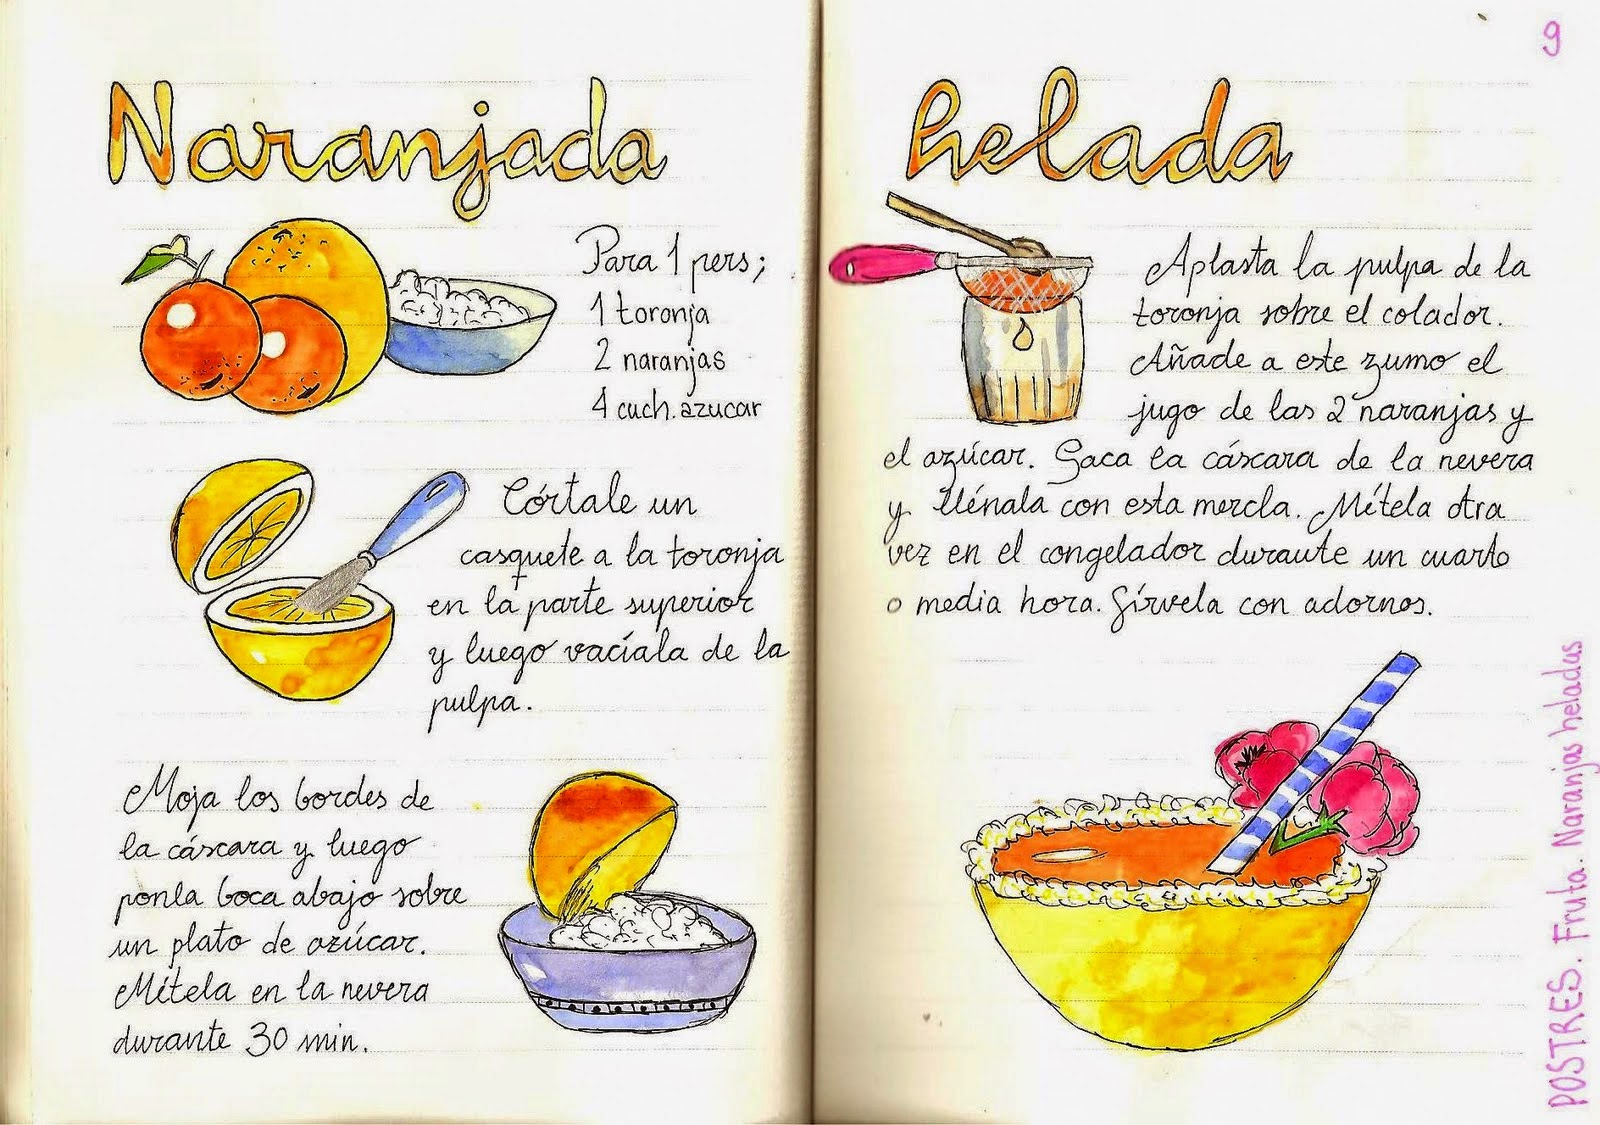 Naranjada
Para 1 pers;
1 toronja
2 naranjas
4 cuch. azucar
Córtale un
casquete a la toronja
en la parte superior
y luego vacíala de la
pulpa.
Moja los bordes de
la cáscara y luego
ponla boca abajo sobre
un plato de azúcar.
Mítela en la nevera
durante 30 min.
helada
9
Aplasta la pulpa de la
toronja sobre el colador.
Añade a este zumo el
jugo de las 2 naranjas y
el azúcar. Saca la cáscara de la nevera
y llénala con esta mezcla. Mítela otra
vez en el congelador durante un cuarto
o media hora. Sírvela con adornos.
POSTRES. Fruta. Naranjas heladas